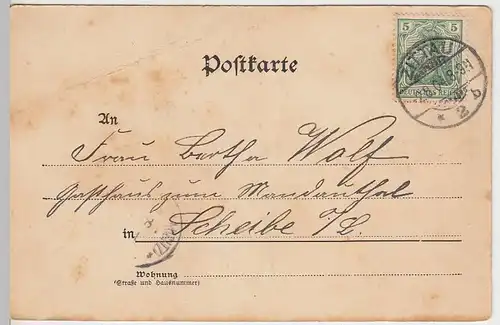 5 5
DEUTSCHES REICH
ZITTAU
* 2 b
Postkarte
An
Frau Bertha Wolf
Gasthaus zum Mandauthal
in Scheibe i/S.
Wohnung
(Straße und Hausnummer)